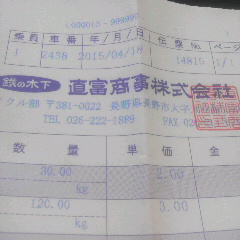 (000013-999999
乗員 車番 年/月/日 伝票No ページ
1 2438 2015/04/18 14815 1/1
鉄の木下 直富商事株式会社
クル部 〒381-0022 長野県長野市大字
TEL 026-222-1889 FAX 02
数量 単価 金
30.00 2.00
kg
120.00 3.00
kg